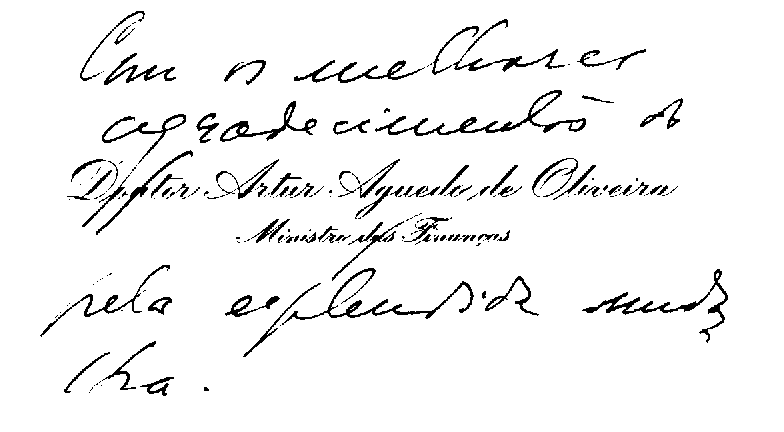 Com os melhores
agradecimentos do
Doutor Artur Aguedo de Oliveira
Ministro das Finanças
pela esplendida